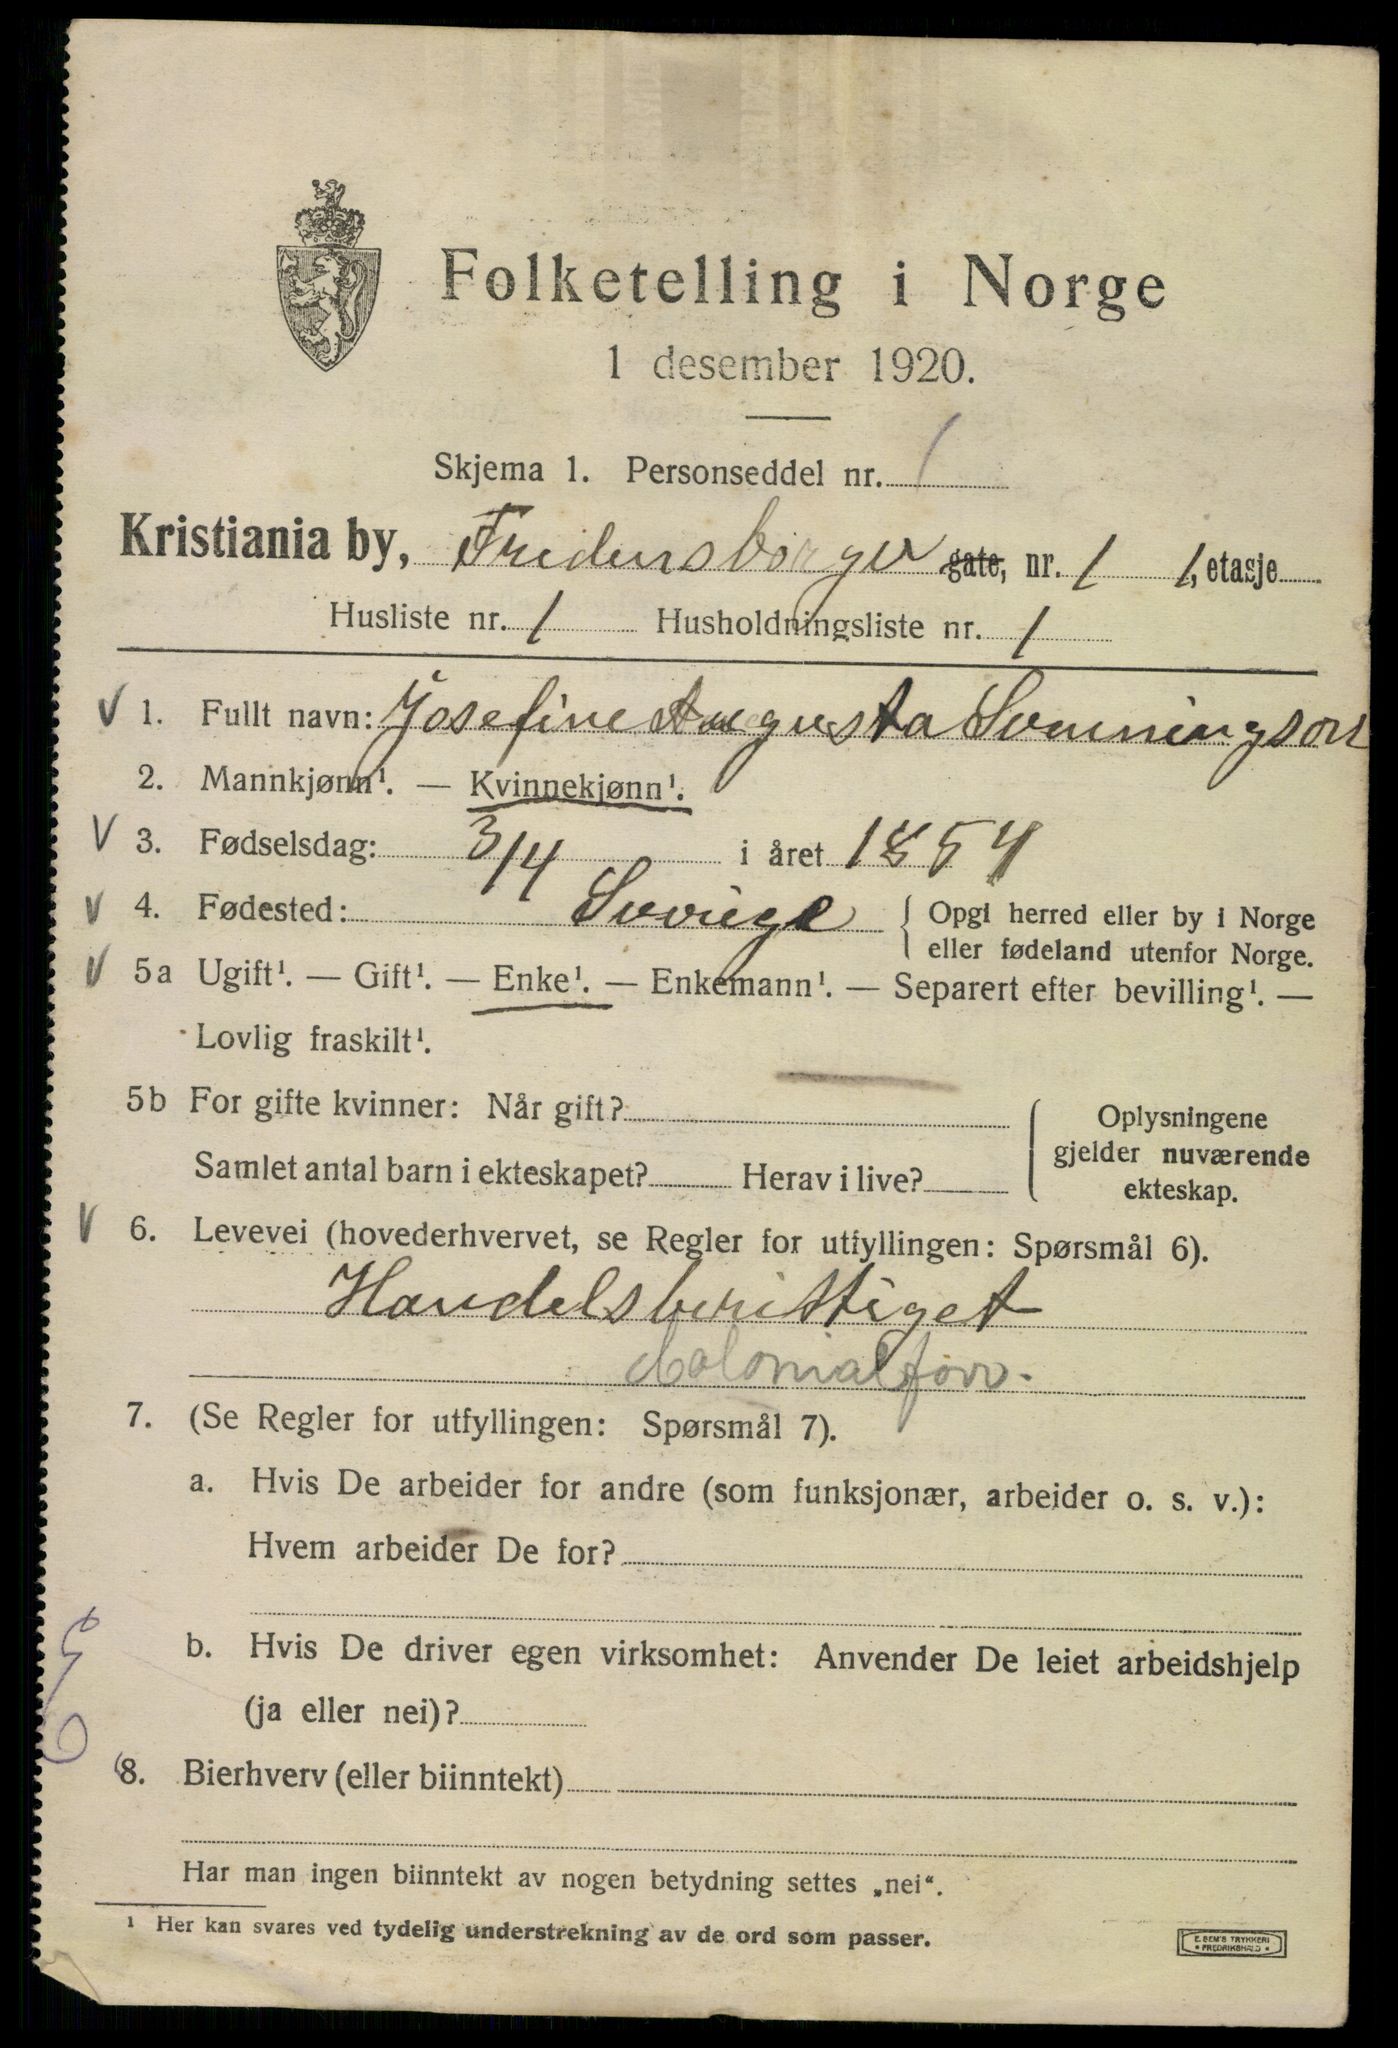 Folketelling i Norge
1 desember 1920.
Skjema 1. Personseddel nr. 1
Kristiania by, Fredensborgv gate, nr. 1 1, etasje
Husliste nr. 1 Husholdningsliste nr. 1
V 1. Fullt navn: Josefine Augusta Svenningson
2. Mannkjønn¹. — Kvinnekjønn¹.
V 3. Fødselsdag: 3/4 i året 1854
V 4. Fødested: Sverige { Opgi herred eller by i Norge
eller fødeland utenfor Norge.
V 5a Ugift¹. — Gift¹. — Enke¹. — Enkemann¹. — Separert efter bevilling¹. —
Lovlig fraskilt¹.
5b For gifte kvinner: Når gift? { Oplysningene
gjelder nuværende
Samlet antal barn i ekteskapet? Herav i live?
ekteskap.
V 6. Levevei (hovederhvervet, se Regler for utfyllingen: Spørsmål 6).
Handelsberittiget
Colonialforr.
7. (Se Regler for utfyllingen: Spørsmål 7).
a. Hvis De arbeider for andre (som funksjonær, arbeider o. s. v.):
Hvem arbeider De for?
b. Hvis De driver egen virksomhet: Anvender De leiet arbeidshjelp
(ja eller nei)?
8. Bierhverv (eller biinntekt)
Har man ingen biinntekt av nogen betydning settes „nei“.
¹ Her kan svares ved tydelig understrekning av de ord som passer.
E. SEM'S TRYKKERI
* FREDRIKSHALD *